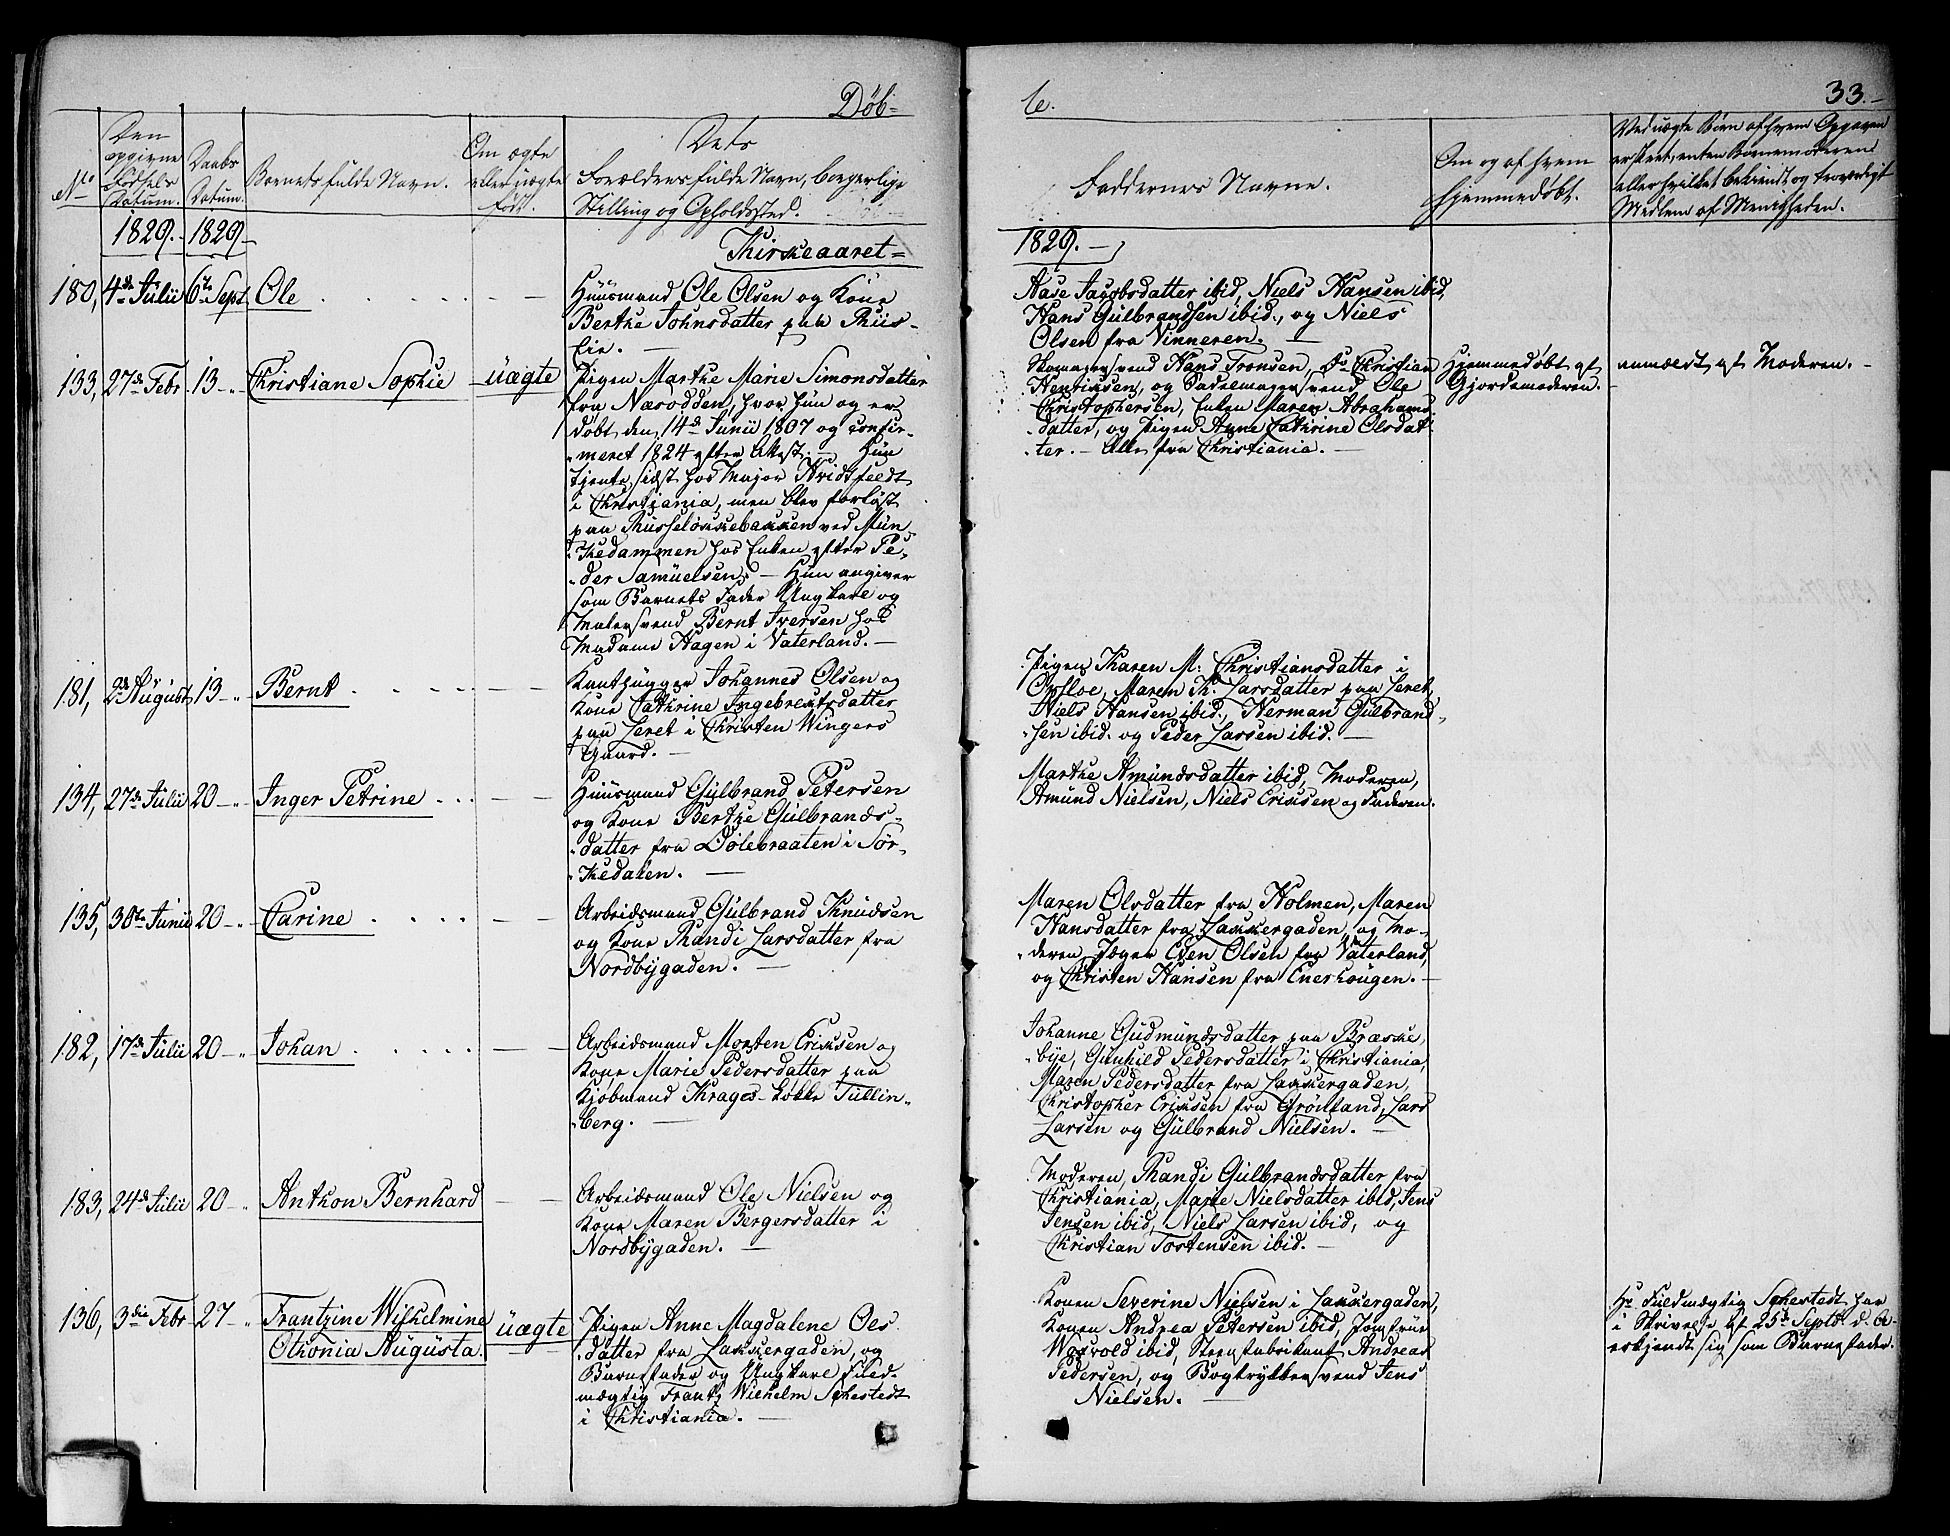 Døb-
No
Den opgivne Fødsels Datum.
Daabs Datum.
Barnets fulde Navn.
Om ægte eller uægte født.
Dets
Forældres fulde Navn, borgerlige
Stilling og Opholdssted.
1829. 1829
Kirkeaaret
180, 4de Julii 6te Sept. Ole
Huusmand Ole Olsen og Kone
Berthe Johnsdatter paa Riis-
Eie.
133, 27de Febr 13 Christiane Sophie uægte
Pigen Marthe Marie Simonsdatter
fra Næsodden, hvor hun og er
døbt den 14de Junii 1807 og confir-
meret 1824 efter Attest. Hun
tjente sidst hos Major Hvidtfeldt
i Christiania, men blev forløst
paa Russeløkkebakken ved Mun-
kedammen hos Enken efter Pe-
der Samuelsen. Hun angiver
som Barnets Fader Ungkarl og
Malersvend Bernt Iversen hos
Madame Hagen i Vaterland.
181, 2den August 13 Bernt
Kanthugger Johannes Olsen og
Kone Cathrine Ingebretsdatter
paa Leret i Christen Wingers
Gaard.
134, 27de Julii 20 Inger Petrine
Huusmand Gulbrand Petersen
og Kone Berthe Gulbrands-
datter fra Dølebraaten i Sør-
kedalen.
135, 30te Junii 20 Carine
Arbeidsmand Gulbrand Knudsen
og Kone Randi Larsdatter fra
Nordbygaden.
182, 17de Julii 20 Johan
Arbeidsmand Morten Eriksen og
Kone Marie Pedersdatter paa
Kjøbmand Krages Løkke Tullin-
berg.
183, 24de Julii 20 Anthon Bernhard
Arbeidsmand Ole Nielsen og
Kone Maren Bergersdatter i
Nordbygaden.
136, 3die Febr 27 Frantzine Wilhelmine
Othonia Augusta. uægte
Pigen Anne Magdalene Ols-
datter fra Lakkergaden, og
Barnefader og Ungkarl Fuld-
mægtig Frantz Wilhelm Sehestedt
i Christiania.
te.
33.
Faddernes Navne.
Om og af hvem
hjemmedøbt.
Ved uægte Børn af hvem Opgaven
er skeet, enten Barnemoderen
eller hvilket bekiendt og troværdigt
Medlem af Menigheden.
1829.
Aase Jacobsdatter ibid, Niels Hansen ibid,
Hans Gulbrandsen ibid., og Niels
Olsen fra Vinneren.
Skomagersvend Hans Tronsen, Do Christian
Henriksen, og Sadelmagersvend Ole
Christophersen, Enken Maren Abrahams-
datter, og Pigen Anne Cathrine Olsdat-
ter. Alle fra Christiania.
Hjemmedøbt af
Gjordemoderen.
anmeldt af Moderen.
Pigen Karen M: Christiansdatter i
Opsloe, Maren K. Larsdatter paa Leret,
Niels Hansen ibid., Herman Gulbrand-
sen ibid. og Peder Larsen ibid.
Marthe Amundsdatter ibid, Moderen,
Amund Nielsen, Niels Eriksen og Faderen.
Maren Olsdatter fra Holmen, Maren
Hansdatter fra Lakkergaden og Mo-
deren, Jøger Even Olsen fra Vaterland,
og Christen Hansen fra Enerhougen.
Johanne Gudmundsdatter paa Bræske-
bye, Gunhild Pedersdatter i Christiania,
Maren Pedersdatter fra Lakkergaden,
Christopher Eriksen fra Grønland, Lars
Larsen og Gulbrand Nielsen.
Moderen, Randi Gulbrandsdatter fra
Christiania, Marte Nielsdatter ibid, Jens
Jensen ibid, Niels Larsen ibid, og
Christian Tostensen ibid.
Konen Severine Nielsen i Lakkergaden,
Konen Andrea Petersen ibid, Jomfrue
Woxvold ibid, Andreas
Pedersen, og Bogtrykkersvend Jens
Nielsen.
Hr Fuldmægtig Sehestedt har
i Skrivelse af 25de Septbr d. A.
erkjendt sig som Barnefader.